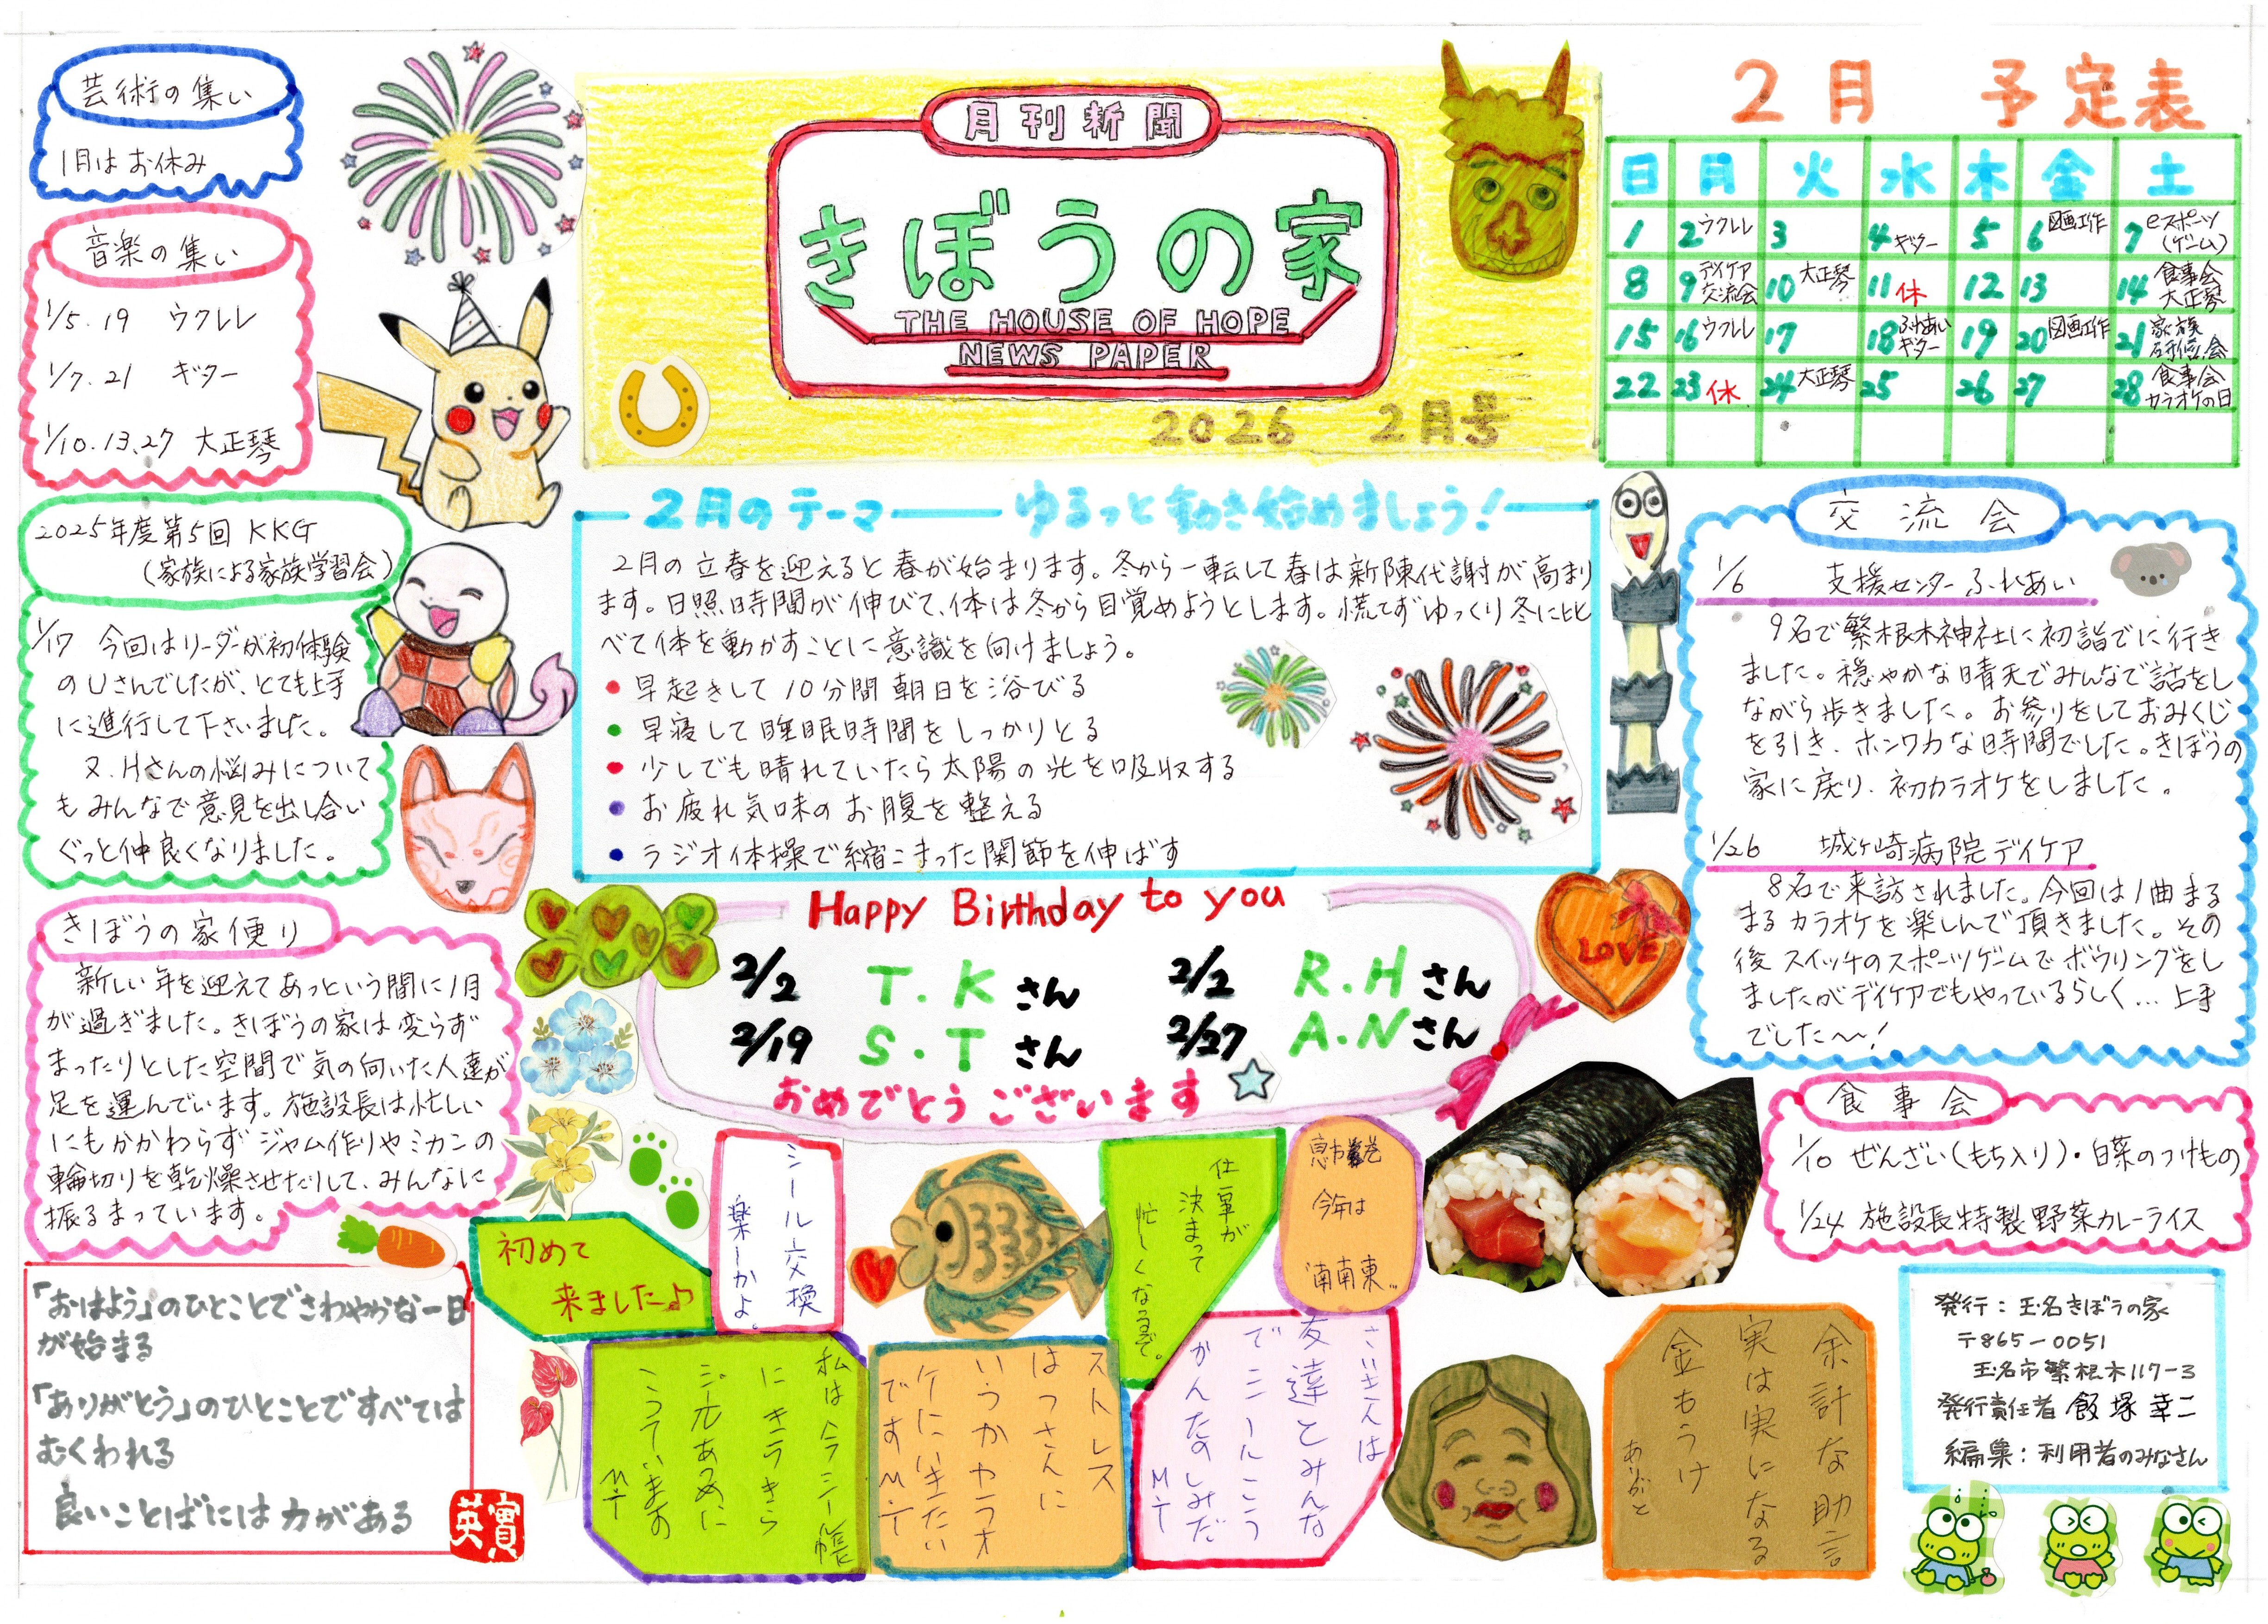 芸術の集い
1月はお休み
音楽の集い
1/5.19 ウクレレ
1/7.21 ギター
1/10.13.27 大正琴
2025年度第5回 KKG
(家族による家族学習会)
1/17 今回はリーダーが初体験
のUさんでしたが、とても上手
に進行して下さいました。
又、Hさんの悩みについて
もみんなで意見を出し合い
ぐっと仲良くなりました。
きぼうの家便り
新しい年を迎えてあっという間に1月
が過ぎました。きぼうの家は変らず
まったりとした空間で気の向いた人達が
足を運んでいます。施設長は忙しい
にもかかわらずジャム作りやミカンの
輪切りを乾燥させたりして、みんなに
振るまっています。
「おはよう」のひとことでさわやかな一日
が始まる
「ありがとう」のひとことですべては
むくわれる
良いことばには力がある
英實
月刊新聞
きぼうの家
THE HOUSE OF HOPE
NEWS PAPER
2026 2月号
2月のテーマ ゆるっと動き始めましょう!
2月の立春を迎えると春が始まります。冬から一転して春は新陳代謝が高まり
ます。日照時間が伸びて、体は冬から目覚めようとします。慌てずゆっくり冬に比
べて体を動かすことに意識を向けましょう。
• 早起きして10分間朝日を浴びる
• 早寝して睡眠時間をしっかりとる
• 少しでも晴れていたら太陽の光を吸収する
• お疲れ気味のお腹を整える
• ラジオ体操で縮こまった関節を伸ばす
Happy Birthday to you
2/2 T.Kさん 2/2 R.Hさん
2/19 S.Tさん 2/27 A.Nさん
おめでとうございます
LOVE
初めて
来ました♪
シール交換
楽しーかよ。
仕事が
決まって
忙しくなるぞ。
恵方巻
今年は
"南南東"
私は今シール帳
にキラキラ
シールあつめに
こっています
M.T
ストレス
はっさんに
いうかカラオ
ケにいきたい
ですM.T
さいきんは
友達とみんな
でシールこう
かんたのしみだ
M.T
余計な助言
実は実になる
金もうけ
ありがと
2月 予定表
日 月 火 水 木 金 土
1 2 ウクレレ 3 4 ギター 5 6 図画工作 7 eスポーツ(ゲーム)
8 9 デイケア交流会 10 大正琴 11 休 12 13 14 食事会 大正琴
15 16 ウクレレ 17 18 ふれあい ギター 19 20 図画工作 21 家族研修会
22 23 休 24 大正琴 25 26 27 28 食事会 カラオケの日
交流会
1/6 支援センターふれあい
9名で繁根木神社に初詣でに行き
ました。穏やかな晴天でみんなで話をし
ながら歩きました。お参りをしておみくじ
を引き、ホンワカな時間でした。きぼうの
家に戻り、初カラオケをしました。
1/26 城ヶ崎病院デイケア
8名で来訪されました。今回は1曲まる
まるカラオケを楽しんで頂きました。その
後スイッチのスポーツゲームでボウリングをし
ましたがデイケアでもやっているらしく…上手
でした〜!
食事会
1/10 ぜんざい(もち入り)・白菜のつけもの
1/24 施設長特製野菜カレーライス
発行:玉名きぼうの家
〒865-0051
玉名市繁根木117-3
発行責任者 飯塚幸二
編集:利用者のみなさん